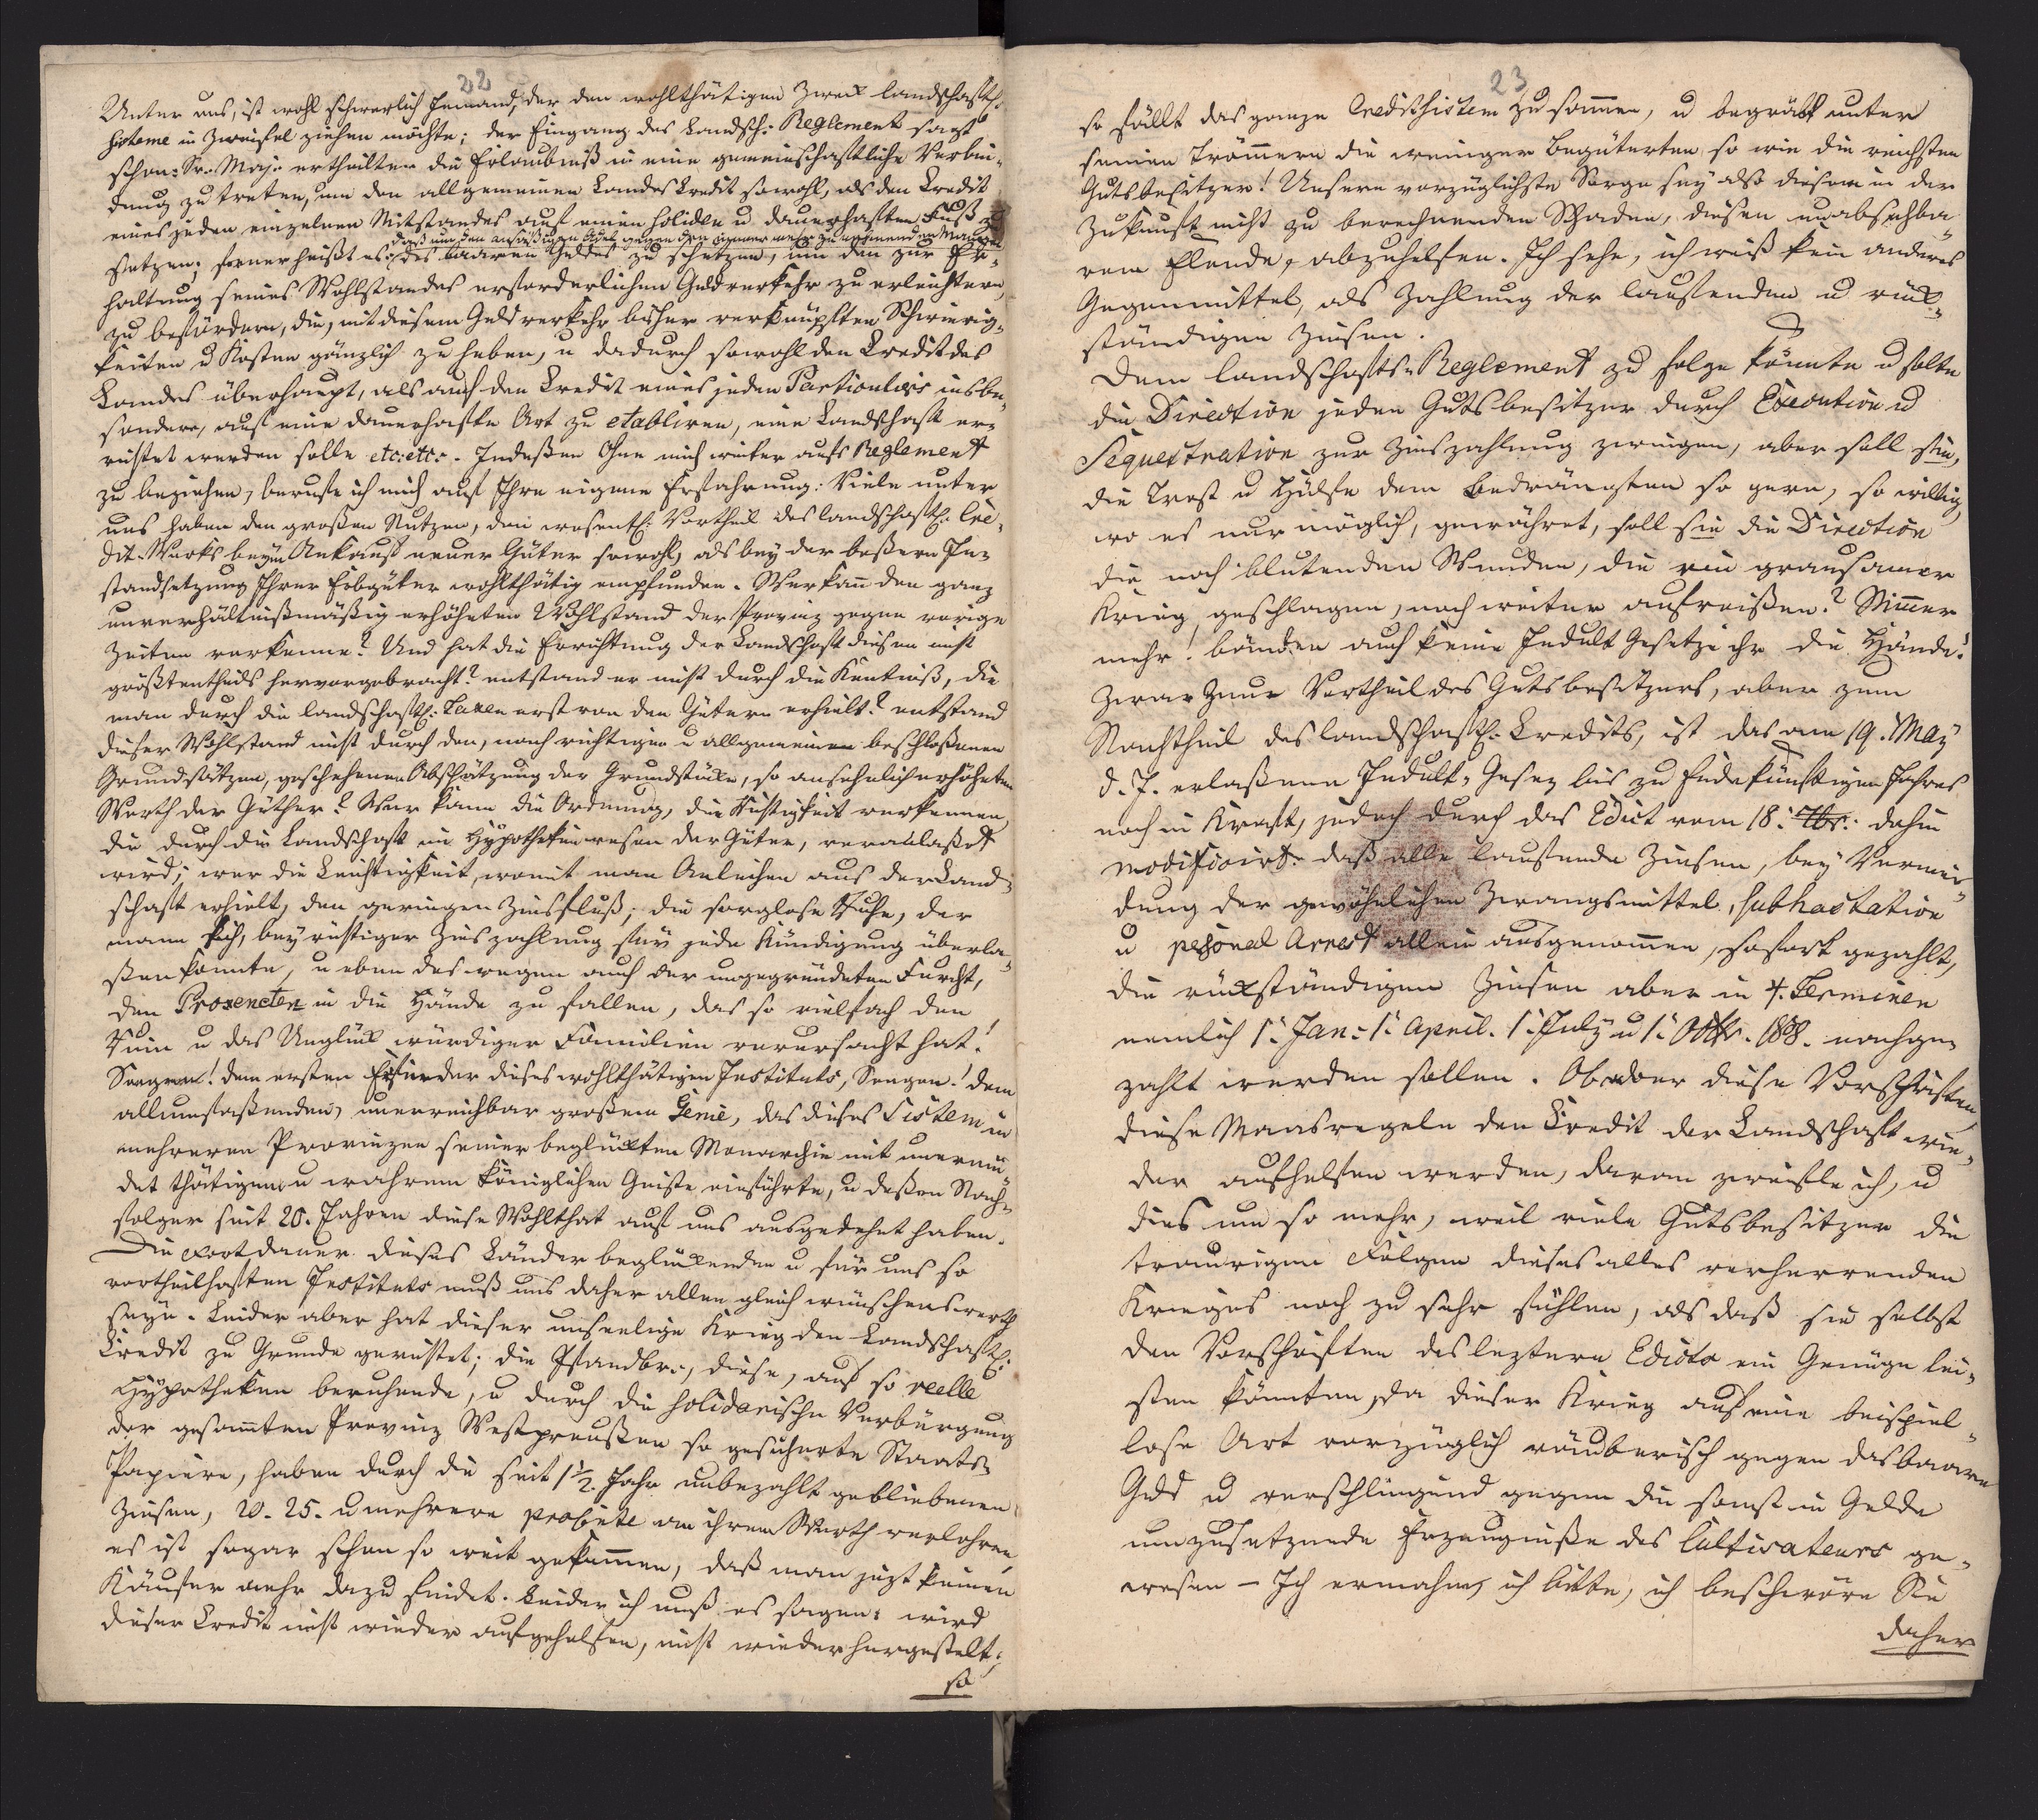 22
Unter uns, ist wohl schwerlich Jemand, der den wohlthätigen Zweck landschaftl.
Sisteme in Zweifel ziehen möchte; der Eingang des Landsch: Reglement sagt
schon: Sr. Maj: ertheilten die Erlaubniß in eine gemeinschaftliche Verbin-
dung zu treten, um den allgemeinen Landes Credit sowohl, als den Credit
eines jeden einzelnen Mitstandes auf einen soliden u dauerhaften Fuß zu
daß um den ansäßigen Adel gegen den immer mehr zunehmenden Mangel
setzen; ferner heißt es: des baaren Geldes zu schützen, um den zur Er-
haltung seines Wohlstandes erforderlichen Geldverkehr zu erleichtern,
zu befördern, die, mit diesem Geldverkehr bisher verknüpften Schwierig-
keiten u Kosten gänzlich zu heben, u dadurch sowohl den Credit des
Landes überhaupt, als auch den Credit eines jeden Particuliers insbe-
sondere, auf eine dauerhafte Art zu etabliren, eine Landschaft er-
richtet werden solle etc: etc:. Indeßen Ohne mich weiter aufs Reglement
zu beziehen, berufe ich mich auf Ihre eigene Erfahrung: Viele unter
uns haben den großen Nutzen, den wesentl: Vortheil des landschaftl: Cre-
dit-Werks beym Ankauf neuer Güter sowohl, als bey der beßern In-
standsetzung Ihrer Erbgüter wohlthätig empfunden. Wer kann den ganz
unverhältnißmäßig erhöheten Wohlstand der Provinz gegen vorige
Zeiten verkennen? Und hat die Errichtung der Landschaft diesen nicht
größtentheils hervorgebracht? entstand er nicht durch die Kentniß, die
man durch die landschaftl: Taxen erst von den Gütern erhielt? entstand
dieser Wohlstand nicht durch den, nach richtigen u allgemeinen beschloßenen
Grundsätzen, geschehenen Abschätzung der Grundstücke, so ansehnlich erhöheten
Werth der Güther? Wer kann die Ordnung, die Richtigkeit verkennen,
die durch die Landschaft im Hypothekenwesen der Güter, veranlaßet
wird; wer die Leichtigkeit, womit man Anleihen aus der Land-
schaft erhielt, den geringen Zinsfluß; die sorglose Ruhe, der
mann sich, bey richtiger Zinszahlung für jede Kündigung überla-
ßen konnte, u eben deswegen auch der ungegründeten Furcht,
den Proxeneten in die Hände zu fallen, das so vielfach den
Ruin u das Unglück würdiger Familien verursacht hat!
Seegen! dem ersten Erfinder dieses wohlthätigen Instituts, Seegen! dem
allumfaßenden, unerreichbar großem Genie, das dieses Sistem in
mehreren Provinzen seiner beglückten Monarchie mit unermü-
det thätigem u wahrem Königlichen Geiste einführte, u deßen Nach-
folger seit 20. Jahren diese Wohlthat auf uns ausgedehnt haben.
Die Fortdauer dieses Länder beglückenden u für uns so
vortheilhaften Instituts muß uns daher allen gleich wünschenswerth
seyn. Leider aber hat dieser unseelige Krieg den Landschaftl:
Credit zu Grunde gerichtet; die Pfandbr:, diese, auf so reelle
Hypotheken beruhende, u durch die solidarische Verbürgung
der gesammten Provinz Westpreußen so gesicherte Staats-
Papiere, haben durch die seit 1½. Jahr unbezahlt gebliebenen
Zinsen, 20. 25. u mehrere procente an ihrem Werth verlohren,
es ist sogar schon so weit gekommen, daß man jezt keinen
Käufer mehr dazu findet. Leider ich muß es sagen: wird
dieser Credit nicht wieder aufgeholfen, nicht wiederhergestelt;
so
23
so fällt das ganze Creditsistem zusammen, u begräbt unter
seinen Trömmern die weniger Begüterten so wie die reichsten
Gutsbesitzer! Unsere vorzüglichste Sorge sey also diesem in der
Zukunft nicht zu berechnenden Schaden, diesem unabsehba-
rem Elende, abzuhelfen. Ich sehe, ich weiß kein anderes
Gegenmittel, als Zahlung der laufenden u rück-
ständigen Zinsen.
Dem landschafts-Reglement zu folge könnte u solte
die Direction jeden Gutsbesitzer durch Execution u
Sequestration zur Zinszahlung zwingen, aber soll sie,
die Trost u Hülfe dem Bedrängten so gern, so willig,
wo es nur möglich, gewähret, soll sie die Direction
die noch blutenden Wunden, die ein grausamer
Krieg, geschlagen, noch weiter aufreißen? Nimmer
mehr! bänden auch keine Indult Gesetze ihr die Hände!
Zwar zum Vortheil des Gutsbesitzers, aber zum
Nachtheil des landschaftl: Credits, ist das am 19. May
d. J. erlaßene Indult-Gesez bis zu Ende künftigen Jahres
noch in Kraft, jedoch durch das Edict vom 18: dahin
modificirt: daß alle laufende Zinsen, bey Vermei-
dung der gewöhnlichen Zwangsmittel, subhastation
u personal Arrest allein ausgenommen, sofort gezahlt,
die rückständigen Zinsen aber in 4. Terminen
nemlich 1: Jan: 1: April. 1: July u 1: Octbr. 1808. nachge-
zahlt werden sollen. Ob aber diese Vorschriften,
diese Maasregeln den Credit der Landschaft wie-
der aufhelfen werden, daran zweifle ich, u
dies um so mehr, weil viele Gutsbesitzer die
traurigen Folgen dieses alles verheerenden
Krieges noch zu sehr fühlen, als daß sie selbst
den Vorschriften des leztern Edicts ein Genüge lei-
sten könnten, da dieser Krieg auf eine beispiel-
lose Art vorzüglich räuberisch gegen das baare
Geld u verschlingend gegen die sonst in Gelde
umzusetzende Erzeugniße des Cultivateurs ge-
wesen – Ich ermahne, ich bitte, ich beschwöre Sie
daher